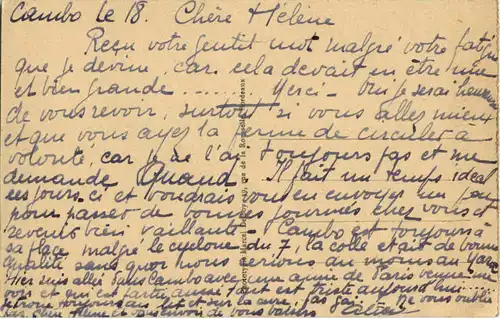 Cambo le 18. Chère Hélène
Reçu votre gentil mot malgré votre fatigue
que je devine car cela devait en être une
et bien grande ........ Merci - Oui je serai heureuse
de vous revoir, surtout si vous allez mieux
et que vous ayez la perme de circuler à
volonté, car je ne l'ai toujours pas et me
demande Quand. Il fait un temps idéal
ces jours-ci et voudrais vous en envoyer un peu
pour passer de bonnes journées chez vous et
revenir bien vaillante - Cambo est toujours à
sa place malgré le cyclone du 7, la colle était de bonne
qualité sans quoi nous serions au moins au
Hier suis allée dans Cambo avec une amie de Paris venue me
voir et qui est partie aussi tout est triste aujourd'hui
toujours au lit et sur la cure, pas gai. Ne vous oublie
pas chère Hélène et vous envoie de bons baisers